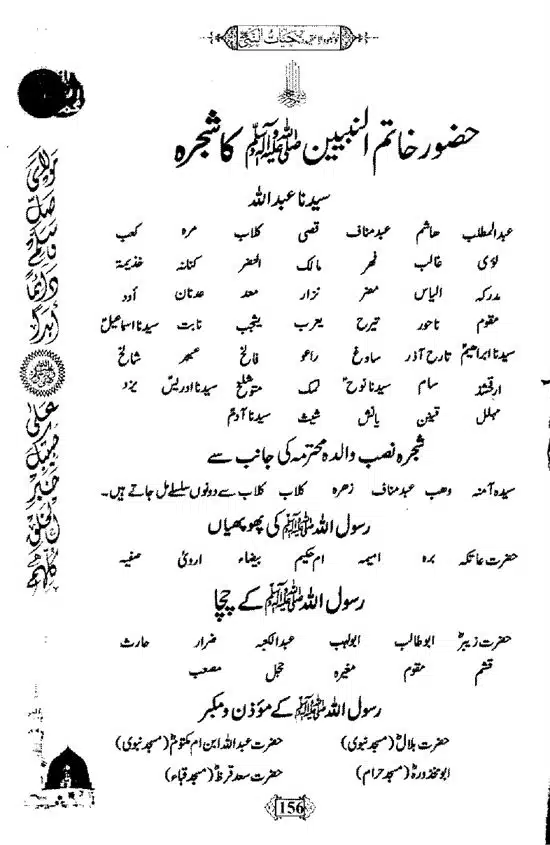 حضور خاتم النبیین ﷺ کا شجرہ
سیدنا عبداللہ
عبدالمطلب ھاشم عبد مناف قصی کلاب مرہ کعب
لؤی غالب فھر مالک النضر کنانہ خذیمۃ
مدرکہ الیاس مضر نزار معد عدنان أود
مقوم ناحور تیرح یعرب یشجب نابت سیدنا اسماعیلؑ
سیدنا ابراھیمؑ تارح آذر ساروغ راعو فالخ عیبر شالخ
ارفخشد سام سیدنا نوحؑ لمک متوشلخ سیدنا ادریسؑ یرد
مہلل قینن یانش شیث سیدنا آدمؑ
شجرہ نصب والدہ محترمہ کی جانب سے
سیدہ آمنہ وھب عبد مناف زھرہ کلاب کلاب سے دونوں سلسلے مل جاتے ہیں۔
رسول اللہ ﷺ کی پھوپھیاں
حضرت عاتکہ برہ امیمہ ام حکیم بیضاء ارویٰ صفیہ
رسول اللہ ﷺ کے چچا
حضرت زبیرؓ ابو طالب ابولہب عبدالکعبہ ضرار حارث
قشم مقوم مغیرہ حجل مصعب
رسول اللہ ﷺ کے مؤذن و مکبر
حضرت بلالؓ (مسجد نبوی) حضرت عبداللہ ابن ام مکتومؓ (مسجد نبوی)
ابو مخذورہؓ (مسجد حرام) حضرت سعد قرظؓ (مسجد قباء)
156
مولای
صل
وسلم
دائما
أبدا
علی
حبیبک
خیر
الخلق
کلھم